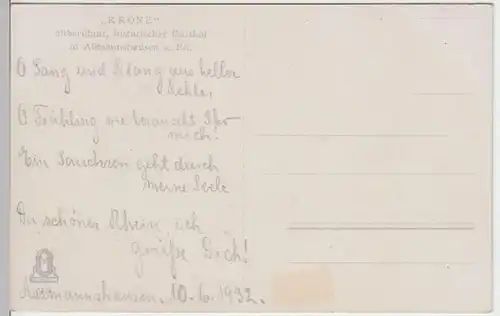 „KRONE“
altberühmt. historischer Gasthof
in Assmannshausen a. Rh.
O Sang und Klang aus heller
Kehle,
O Frühling wie berauscht Ihr
mich!
Ein Jauchzen geht durch
meine Seele
Du schöner Rhein, ich
grüße Dich!
Assmannshausen, 10.6.1932.